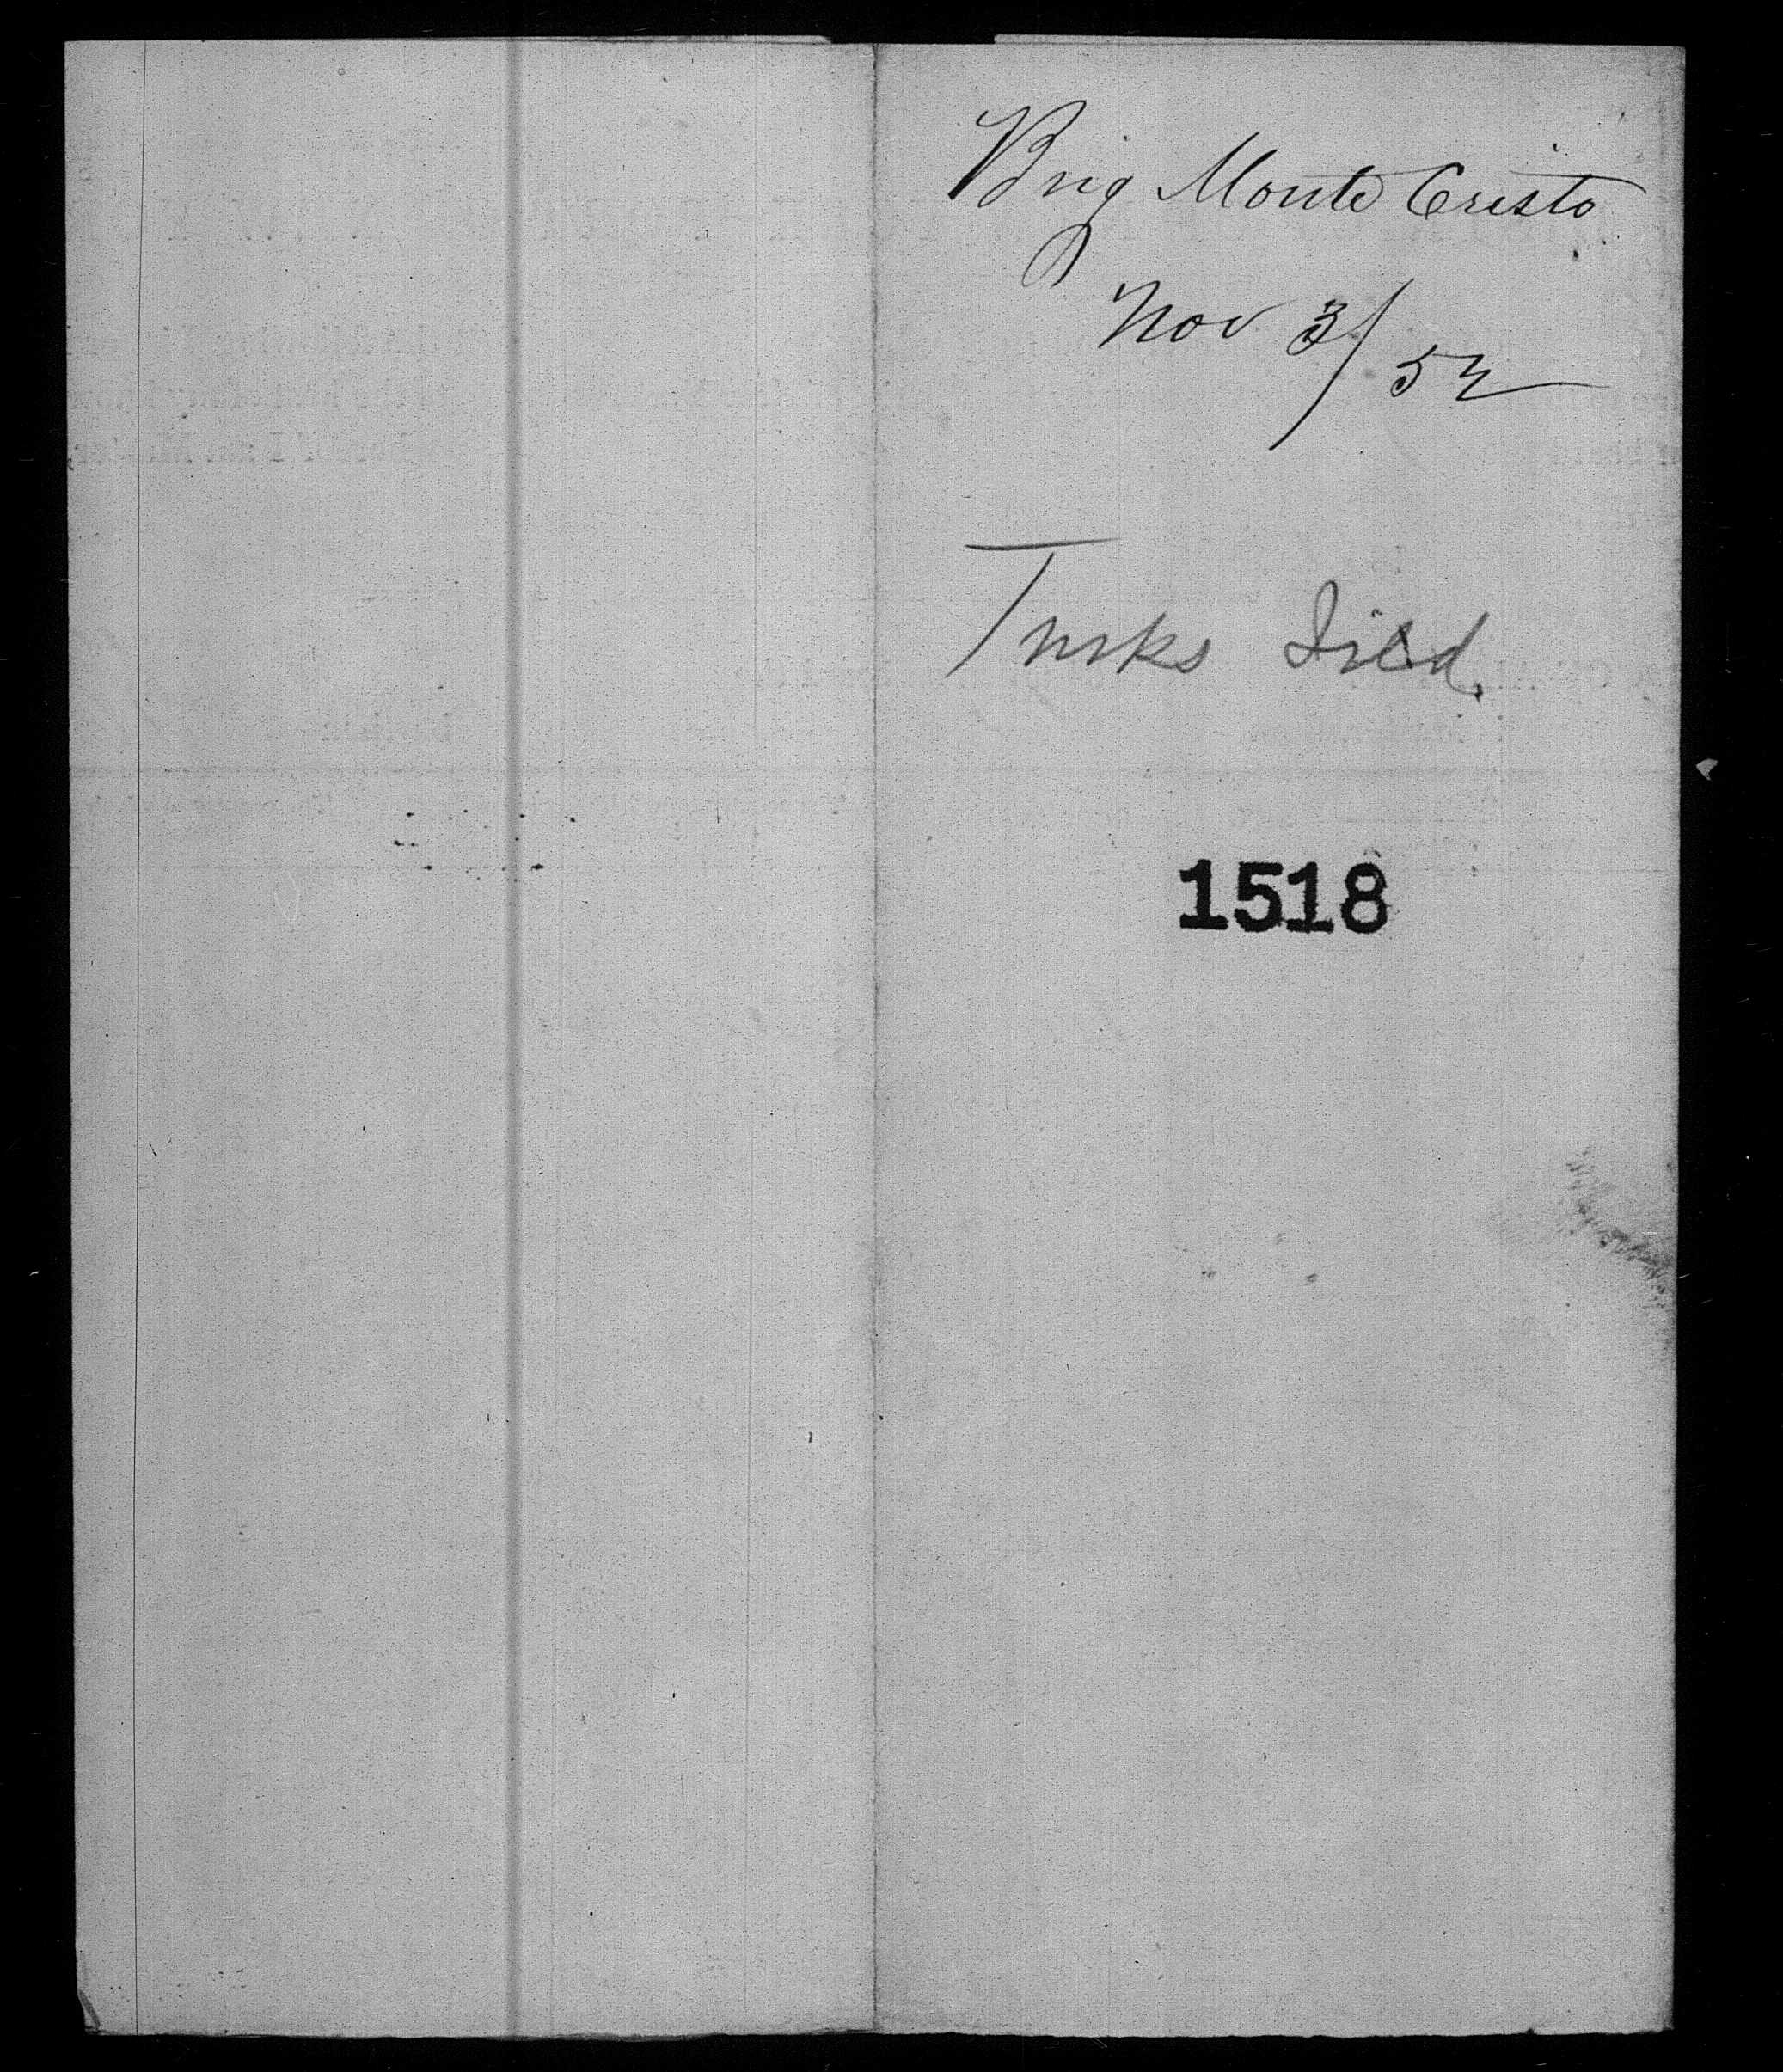 Brig Monte Cristo
Nov 3/52
Turks Isld.
1518